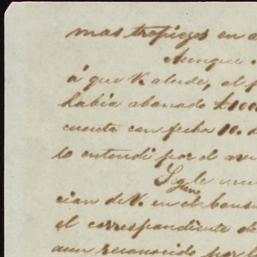 mas tropiezos en
Aunque
á que V. alude, el
habia abonado £100
cuenta con fecha 10. d
lo entendi por el avi
Sgle
cion de V. en el cons
el correspondiente de
aun reconocido por l